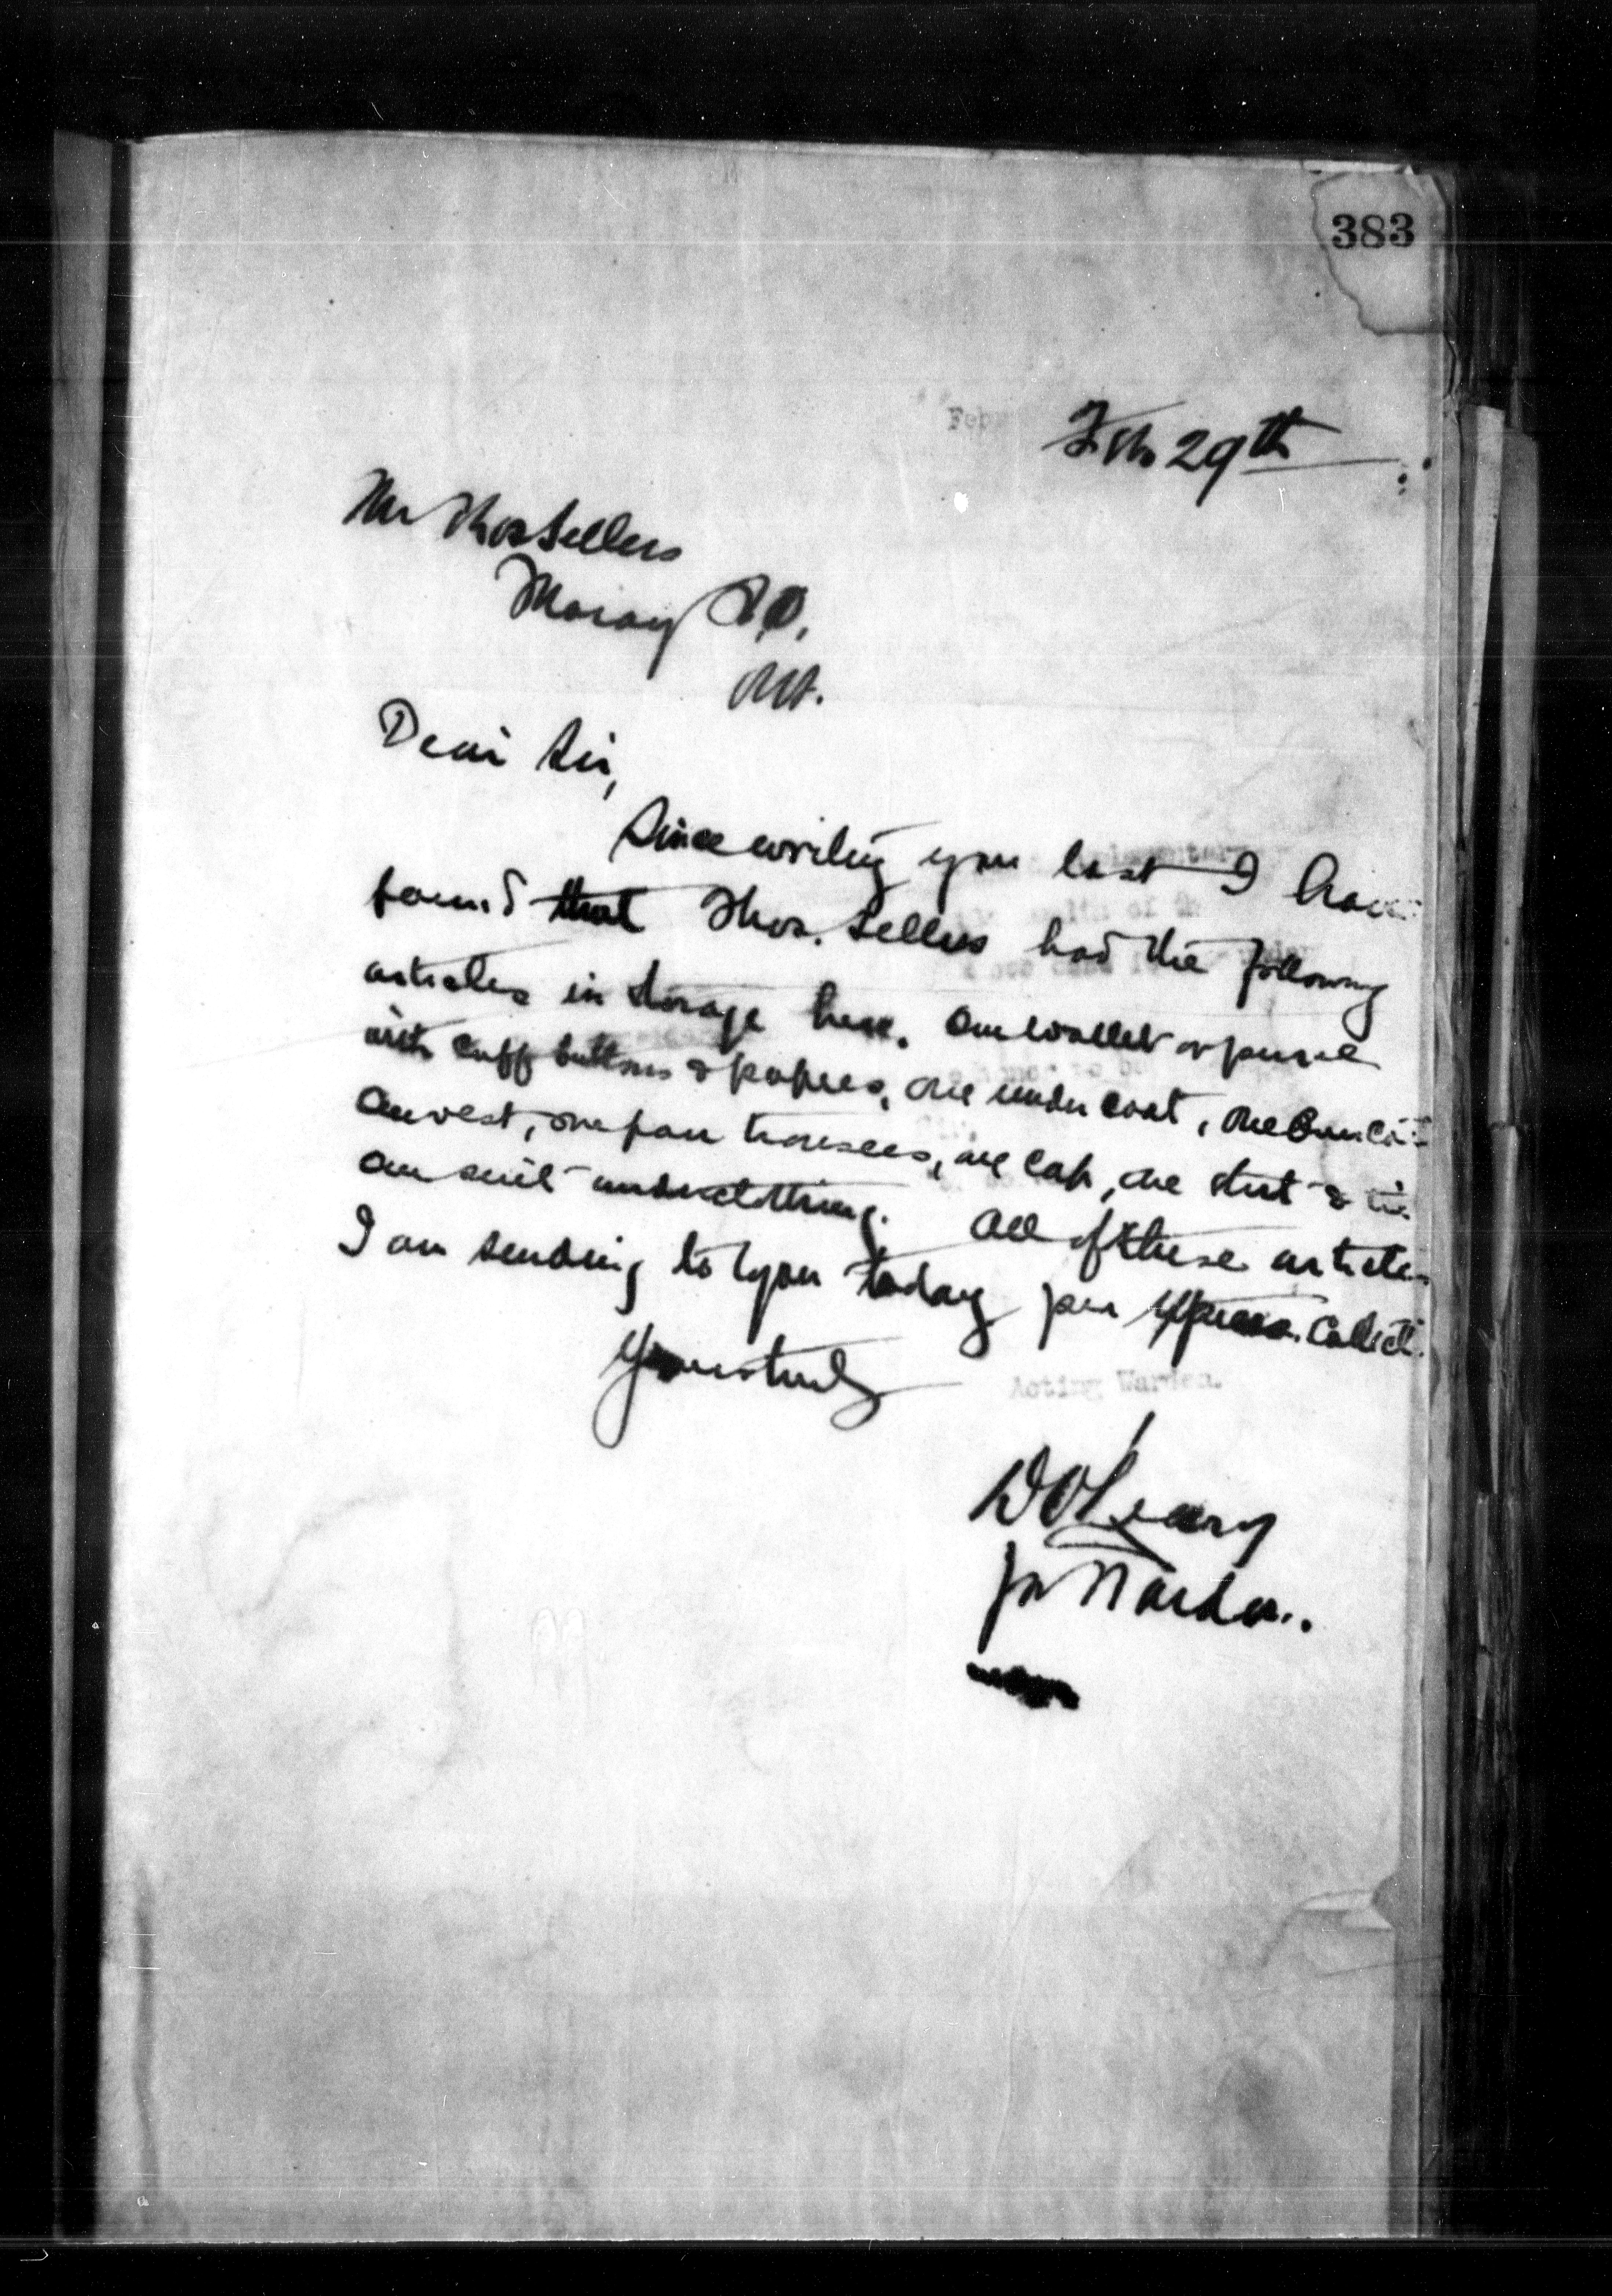 383
Feb 29th
Mr Thos Sellers
Moray P.O.
Ont.
Dear Sir,
Since writing you last I have
found that Thos. Sellers had the following
articles in storage here. One wallet or purse
with cuff buttons & papers, one under coat, one
one vest, one pair trousers, one cap, one shirt & tie
one suit underclothing. All of these articles
I am sending to you today per Express. Collect.
Yours truly
Acting Warden.
D O'Leary
for Warden.